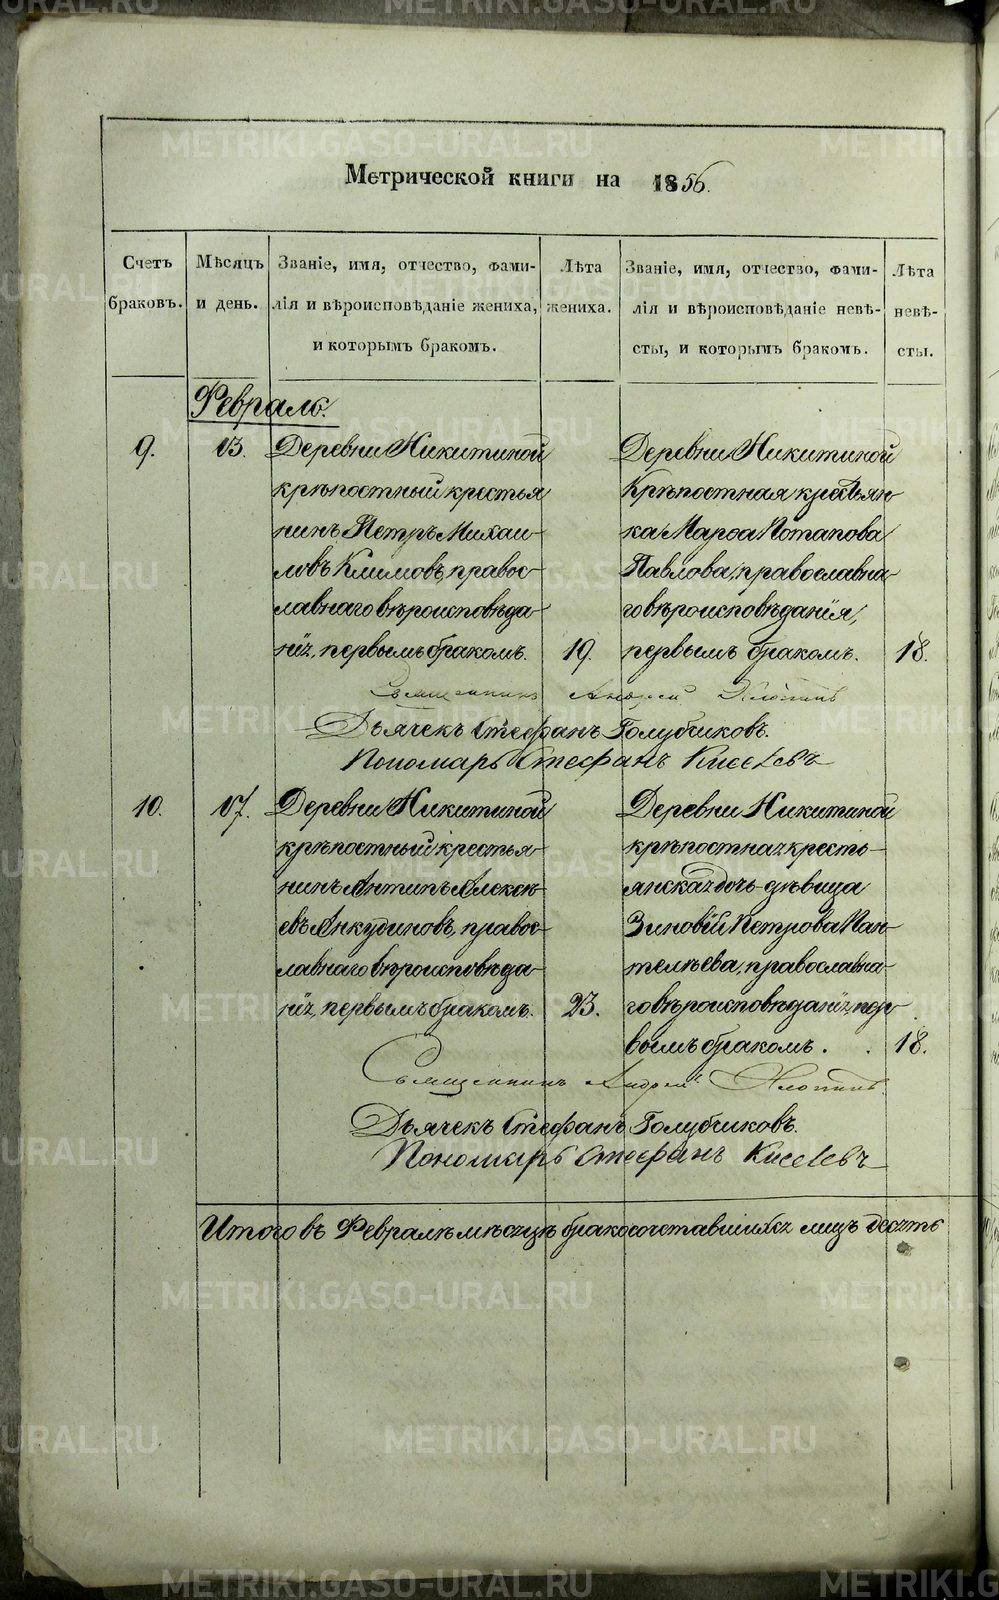 METRIKI.GASO-URAL.RU
Метрической книги на 1856.
Счетъ браковъ.
Мѣсяцъ и день.
Званіе, имя, отчество, фами-
лія и вѣроисповѣданіе жениха,
и которымъ бракомъ.
Лѣта жениха.
Званіе, имя, отчество, фами-
лія и вѣроисповѣданіе невѣ-
сты, и которымъ бракомъ.
Лѣта невѣ-
сты.
Февраль.
9.
13.
Деревни Никитиной
крѣпостный крестья
нинъ Петръ Михаи-
ловъ Климовъ, правос-
лавнаго вѣроисповѣда-
нія, первымъ бракомъ.
19.
Деревни Никитиной
Крѣпостная крестьян
ка Марѳа Потапова
Павлова, православна-
го вѣроисповѣданія,
первымъ бракомъ.
18.
Священникъ Андрей
Дьячекъ Стефанъ Голубчиковъ.
Пономарь Стефанъ Киселевъ
10.
17.
Деревни Никитиной
крѣпостный крестья-
нинъ Антипъ Алексѣ-
евъ Анкудиновъ, правос-
лавнаго вѣроисповѣда-
нія, первымъ бракомъ.
23.
Деревни Никитиной
крѣпостная кресть-
янская дочь-дѣвица
Зиновій Петрова Пан-
телѣева, православна-
го вѣроисповѣданія, пер-
вымъ бракомъ.
18.
Священникъ Андрей
Дьячекъ Стефанъ Голубчиковъ.
Пономарь Стефанъ Киселевъ
Итого въ Февралѣ мѣсяцѣ бракосочетавшихся лицъ десять